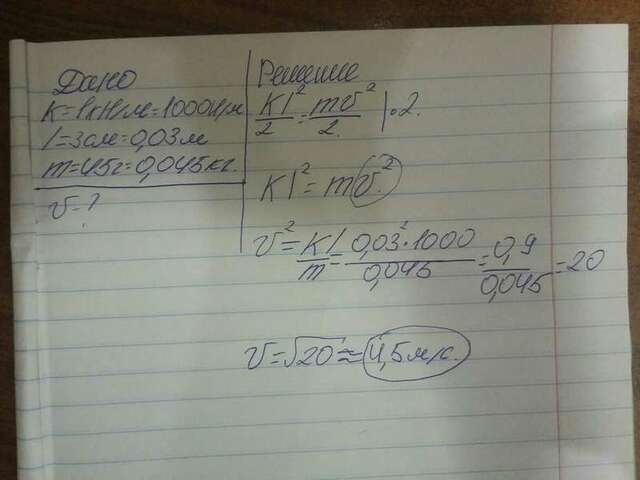 Дано
K=1кН/м=1000Н/м
l=3см=0,03м
m=45г=0,045кг.
v-?
Решение
Kl²/2=mv²/2.|·2.
Kl²=mv².
v²=Kl/m=0,03²·1000/0,045=0,9/0,045=20
v=√20≈4,5м/с.